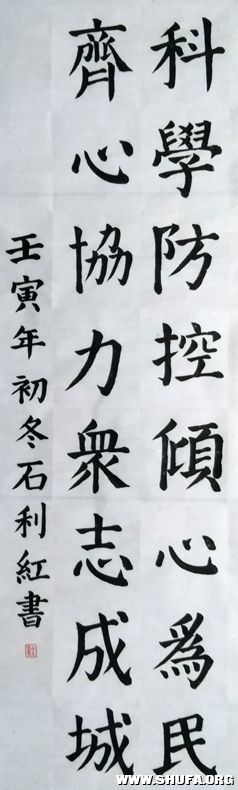 科學防控傾心爲民
齊心協力衆志成城
壬寅年初冬石利紅書
WWW.SHUFA.ORG